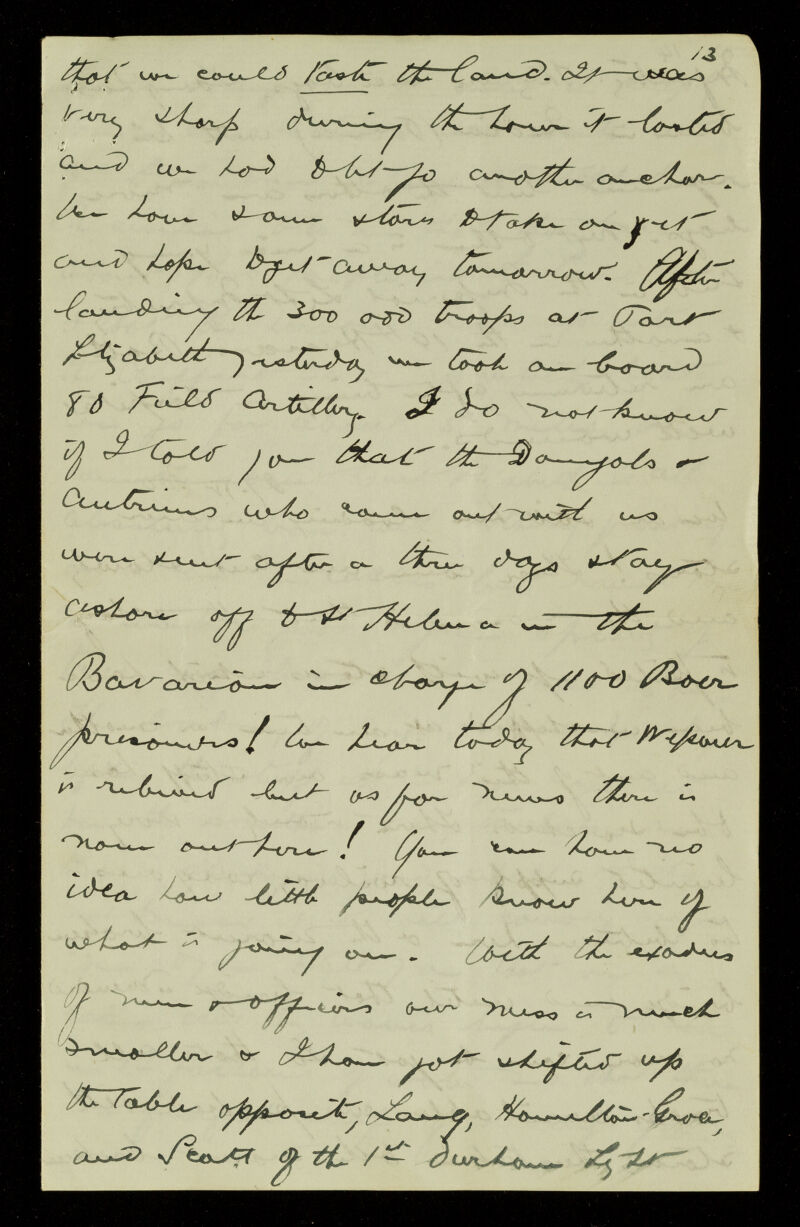 13
that we could taste the land. It was
very sharp during the hour it lasted
and we had to let go another anchor.
We have some stores to take on yet
and hope to get away tomorrow. After
landing the 300 odd troops at Port
Elizabeth yesterday we took on board
80 Field Artillery. I do not know
if I told you that the Donegals &
Antrims who came out with us
were sent after a three days stay
ashore off to St Helena in the
Bavarian in charge of 1100 Boer
prisoners! We hear today that Wepener
is relieved but as for news there is
none out here! You can have no
idea how little people know here of
what is going on. With the exodus
of men & officers our mess is much
smaller & I have got shifted up
the table opposite, Lang, Hamilton-Grace,
and Scott of the 1st Durham Lg It